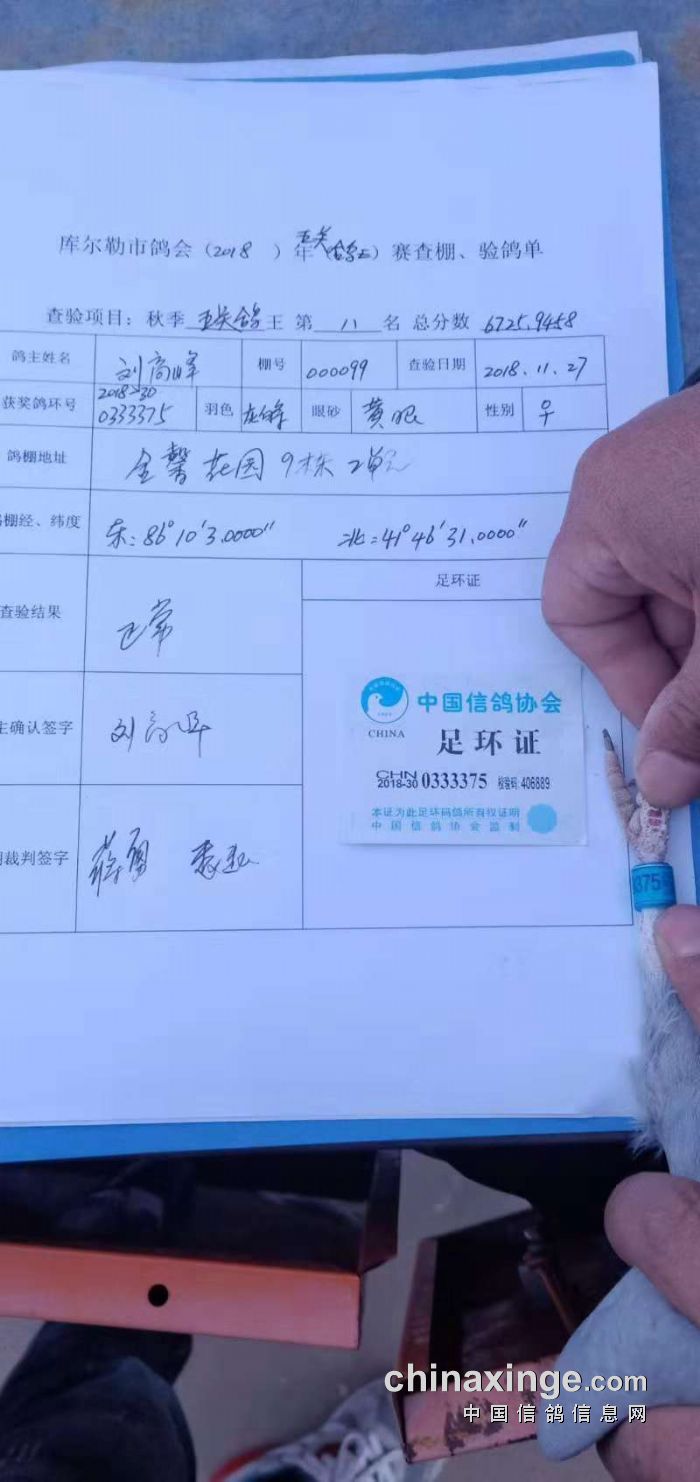 库尔勒市鸽会（2018 ）年五关（鸽王）赛查棚、验鸽单
查验项目：秋季 五关鸽 王 第 八 名 总分数 6725.9458
鸽主姓名 刘高峰 棚号 000099 查验日期 2018.11.27
获奖鸽环号 2018-30 0333375 羽色 眼砂 黄眼 性别 ♀
鸽棚地址 金馨花园9栋2单元
棚经、纬度 东：86°10′3.0000″ 北：41°46′31.0000″
足环证
查验结果 正常
中国信鸽协会
CHINA
足环证
CHN
2018-30 0333375 校验码: 406889
本证为此足环码鸽所有权证明
中国信鸽协会监制
主确认签字 刘高峰
裁判签字
375
chinaxinge.com
中国信鸽信息网